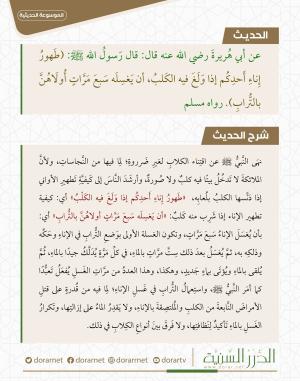 الموسوعة الحديثية
الحديث
عن أبي هُريرةَ رضي الله عنه قال: قال رَسولُ اللهِ ﷺ: ((طَهورُ
إناءِ أحَدِكُم إذا وَلَغَ فيه الكَلبُ، أن يَغسِلَه سَبعَ مَرَّاتٍ أُولاهُنَّ
بالتُّرابِ)). رواه مسلم
شرح الحديث
نهَى النَّبيُّ ﷺ عن اقتِناءِ الكلابِ لغيرِ ضَرورةٍ؛ لِما فيها من النَّجاساتِ، ولأنَّ
الملائكةَ لا تَدخُلُ بيتًا فيه كلبٌ ولا صُورةٌ، وأرشدَ النَّاسَ إلى كيفيَّةِ تَطهيرِ الأواني
إذا دَنَّسها الكلبُ بلُعابِه، «طَهورُ إناءِ أحدِكم إذا وَلَغ فيه الكلبُ» أي: كيفيةُ
تطهيرِ الإناءِ إذا شَرِب منه كلبٌ: «أن يَغسِلَه سبعَ مرَّاتٍ أُولاهنَّ بالتُّرابِ» أي:
بأن يُغسلَ الإناءُ سبعَ مرَّاتٍ، وتكون الغسلة الأولى بوَضعِ التُّرابِ في الإناءِ وحَكِّه
ودَلكِه به، ثمَّ يُغسَلُ بعدَ ذلك ستَّ مرَّاتٍ بالماءِ، في كلِّ مرَّةٍ يُدلَّكُ جيدًا بالماءِ، ثُمَّ
يُلقى بالماءِ ويُؤتَى بماءٍ جديدٍ، وهكذا، وهذا العددُ من مرَّاتِ الغَسلِ يُفعَلُ تعبُّدًا
كما أمَر النبيُّ ﷺ، واستِعمالُ التُّرابِ في غَسلِ الإناءِ؛ لِما فيه من قُدرةٍ على قتلِ
الأمراضِ النَّابعةِ من الكلبِ والمُلتصِقةِ بالإناءِ، ولا يَقدِرُ الماءُ على إزالتِها، وتَكرارُ
الغَسلِ بالماءِ تأكيدٌ لِنَظافتِها، ولا فَرقَ بينَ أنواعِ الكلابِ في ذلك.
dorarnet dorarnet dorarrnet dorartv
الدرر السنية
www.dorar.net